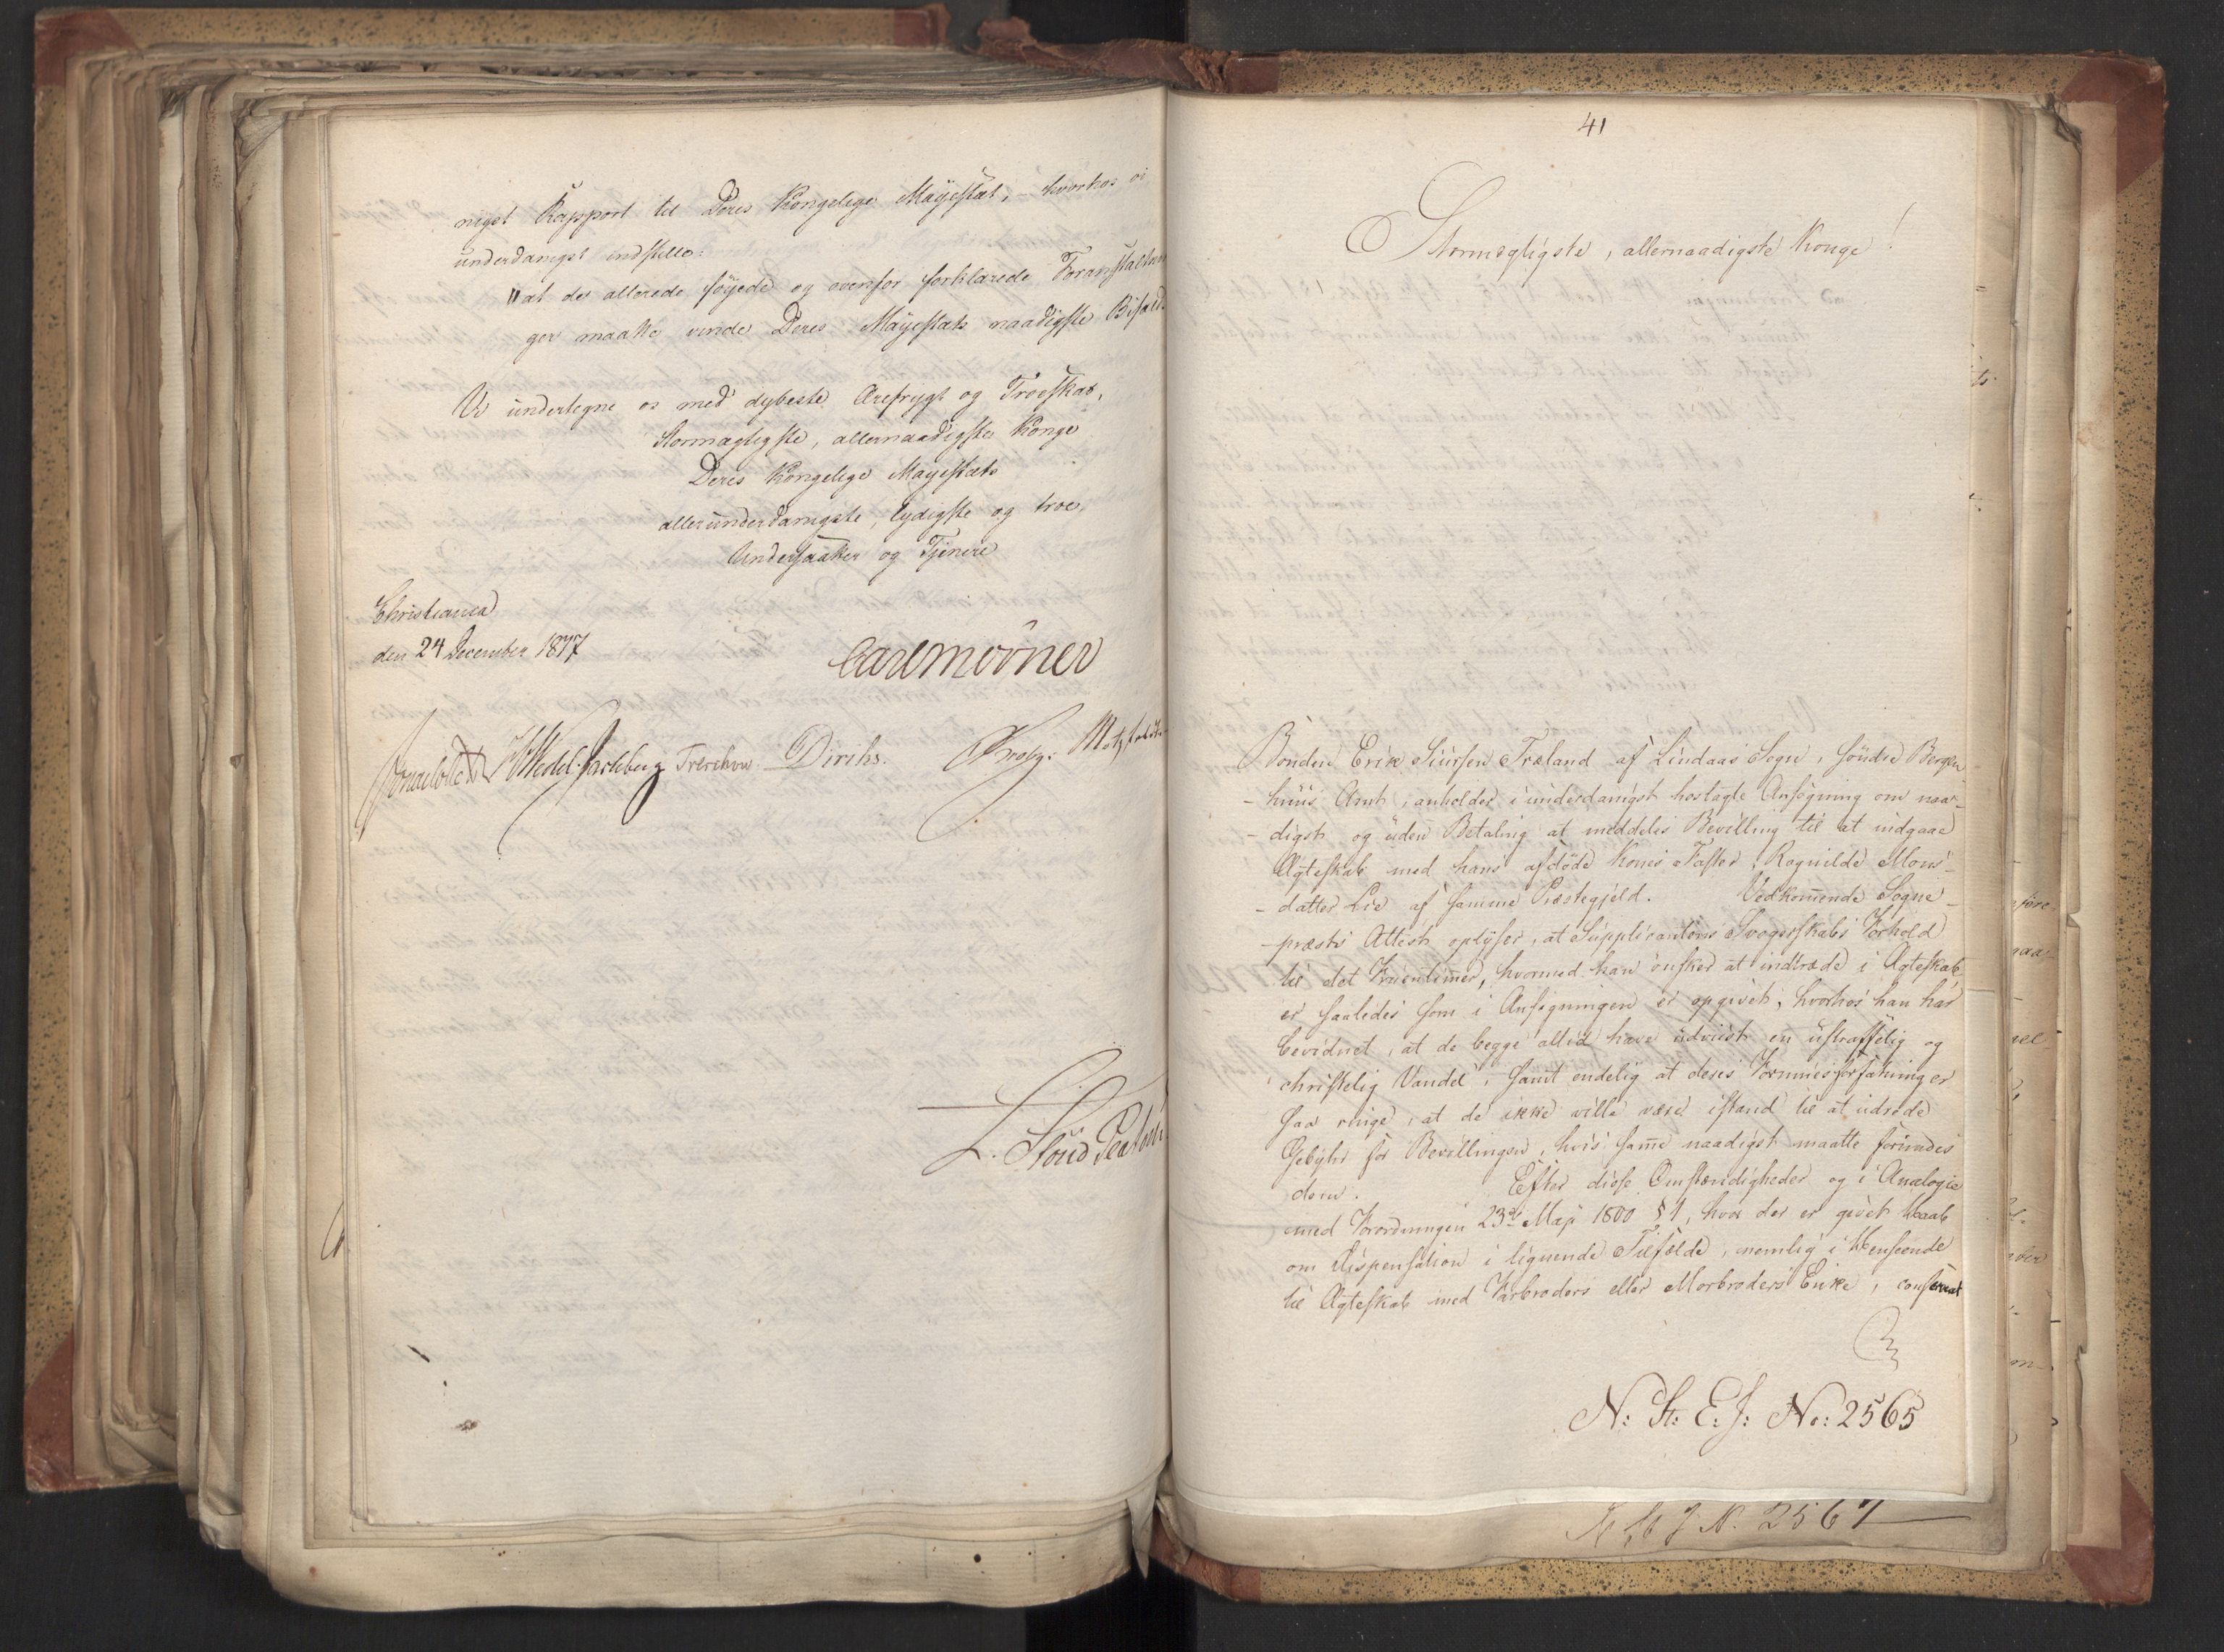 nigst Rapport til Deres Kongelige Mayestæt, hvorhos vi
underdanigst indstille:
"at de allerede föyede og ovenfor forklarede Foranstaltnin
ger maatte vinde Deres Mayestæts naadigste Bifald.
Vi undertegne os med dybeste Ærefrygt og Troeskab,
Stormægtigste, allernaadigste Konge
Deres Kongelige Mayestæts
allerunderdanigste, lydigste og troe
Undersaatter og Tjenere
Christiania
den 24 December 1817
Carl Mörner
Sommerhielm HWedel-Jarlsberg Treschow. Diriks. Krogh. Motzfeldt
L. Stoud Platou
41
Stormægtigste, allernaadigste Konge!
Bonden Erik Siursen Træland af Lindaas Sogn, söndre Bergen
-huus Amt, anholder i underdanigst hoslagte Ansögning om naa-
-digst og uden Betaling at meddeles Bevilling til at indgaae
Ægteskab med hans afdöde Kones Faster, Ragnilde Mons-
-datter Lie af samme Præstegjeld. Vedkommende Sogne-
-præsts Attest oplyser, at Supplicantens Svogerskabs Forhold
til det Fruentimmer, hvormed han önsker at indtræde i Ægteskab
er saaledes som i Ansögningen er opgivet, hvorhos han har
bevidnet, at de begge altid have udviist en ustraffelig og
christelig Vandel, samt endelig at deres Formuesforfatning er
saa ringe, at de ikke ville være istand til at udrede
Gebyhr for Bevillingen, hvis samme naadigst maatte forundes
dem. Efter disse Omstændigheder og i Analogie
med Forordningen 23de May 1800 § 1, hvor der er givet Haab
om Dispensation i lignende Tilfælde, nemlig i Henseende
til Ægteskab med Farbroders eller Morbroders Enke, confereret
N: St: E: J: No: 2565
N. 2567